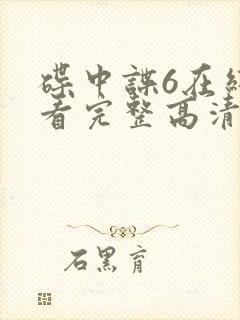 碟中諜6在線
看完整高清
石黑育